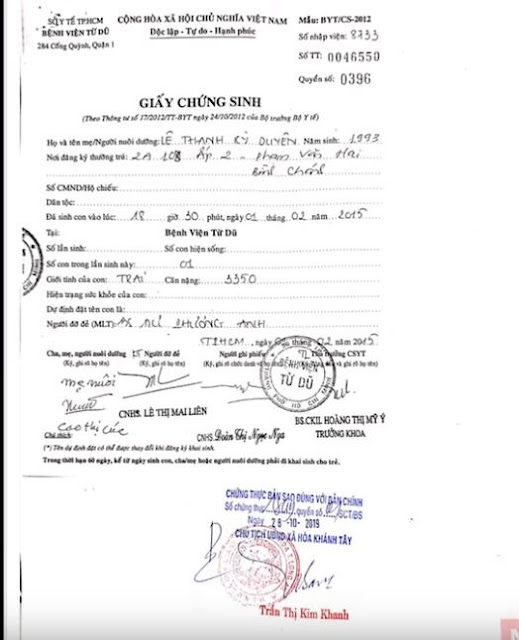 SỞ Y TẾ TP.HCM
BỆNH VIỆN TỪ DŨ
284 Cống Quỳnh, Quận 1
CỘNG HÒA XÃ HỘI CHỦ NGHĨA VIỆT NAM
Độc lập - Tự do - Hạnh phúc
Mẫu: BYT/CS-2012
Số nhập viện: 8733
Số TT: 0046550
Quyển số: 0396
GIẤY CHỨNG SINH
(Theo Thông tư số 17/2012/TT-BYT ngày 24/10/2012 của Bộ trưởng Bộ Y tế)
Họ và tên mẹ/Người nuôi dưỡng: LÊ THANH KỲ DUYÊN Năm sinh: 1993
Nơi đăng ký thường trú: 2A 108 Ấp 2 - Phạm Văn Hai
Bình Chánh
Số CMND/Hộ chiếu:
Dân tộc:
Đã sinh con vào lúc: 18 giờ 30 phút, ngày 01 tháng 02 năm 2015
Tại: Bệnh Viện Từ Dũ
Số lần sinh: Số con hiện sống:
Số con trong lần sinh này: 01
Giới tính của con: TRAI Cân nặng: 3350
Hiện trạng sức khỏe của con:
Dự định đặt tên con là:
Người đỡ đẻ (MLT): PHƯƠNG ANH
TPHCM, ngày tháng 02 năm 2015
Cha, mẹ, người nuôi dưỡng Người đỡ đẻ Người ghi phiếu Thủ trưởng CSYT
(Ký, ghi rõ họ tên) (Ký, ghi rõ họ tên)
BỆNH VIỆN
TỪ DŨ
mẹ nuôi
Cao Thị Cúc
CNHS. LÊ THỊ MAI LIÊN
CNHS. Đoàn Thị Ngọc Nga
BS.CKII. HOÀNG THỊ MỸ Ý
TRƯỞNG KHOA
Ghi chú:
(*) Tên dự định đặt có thể được thay đổi khi đăng ký khai sinh.
Trong thời hạn 60 ngày, kể từ ngày sinh con, cha/mẹ hoặc người nuôi dưỡng phải đi khai sinh cho trẻ.
CHỨNG THỰC BẢN SAO ĐÚNG VỚI BẢN CHÍNH
Số chứng thực quyển số SCT/BS
Ngày 28 -10- 2019
CHỦ TỊCH UBND XÃ HÒA KHÁNH TÂY
Trần Thị Kim Khanh